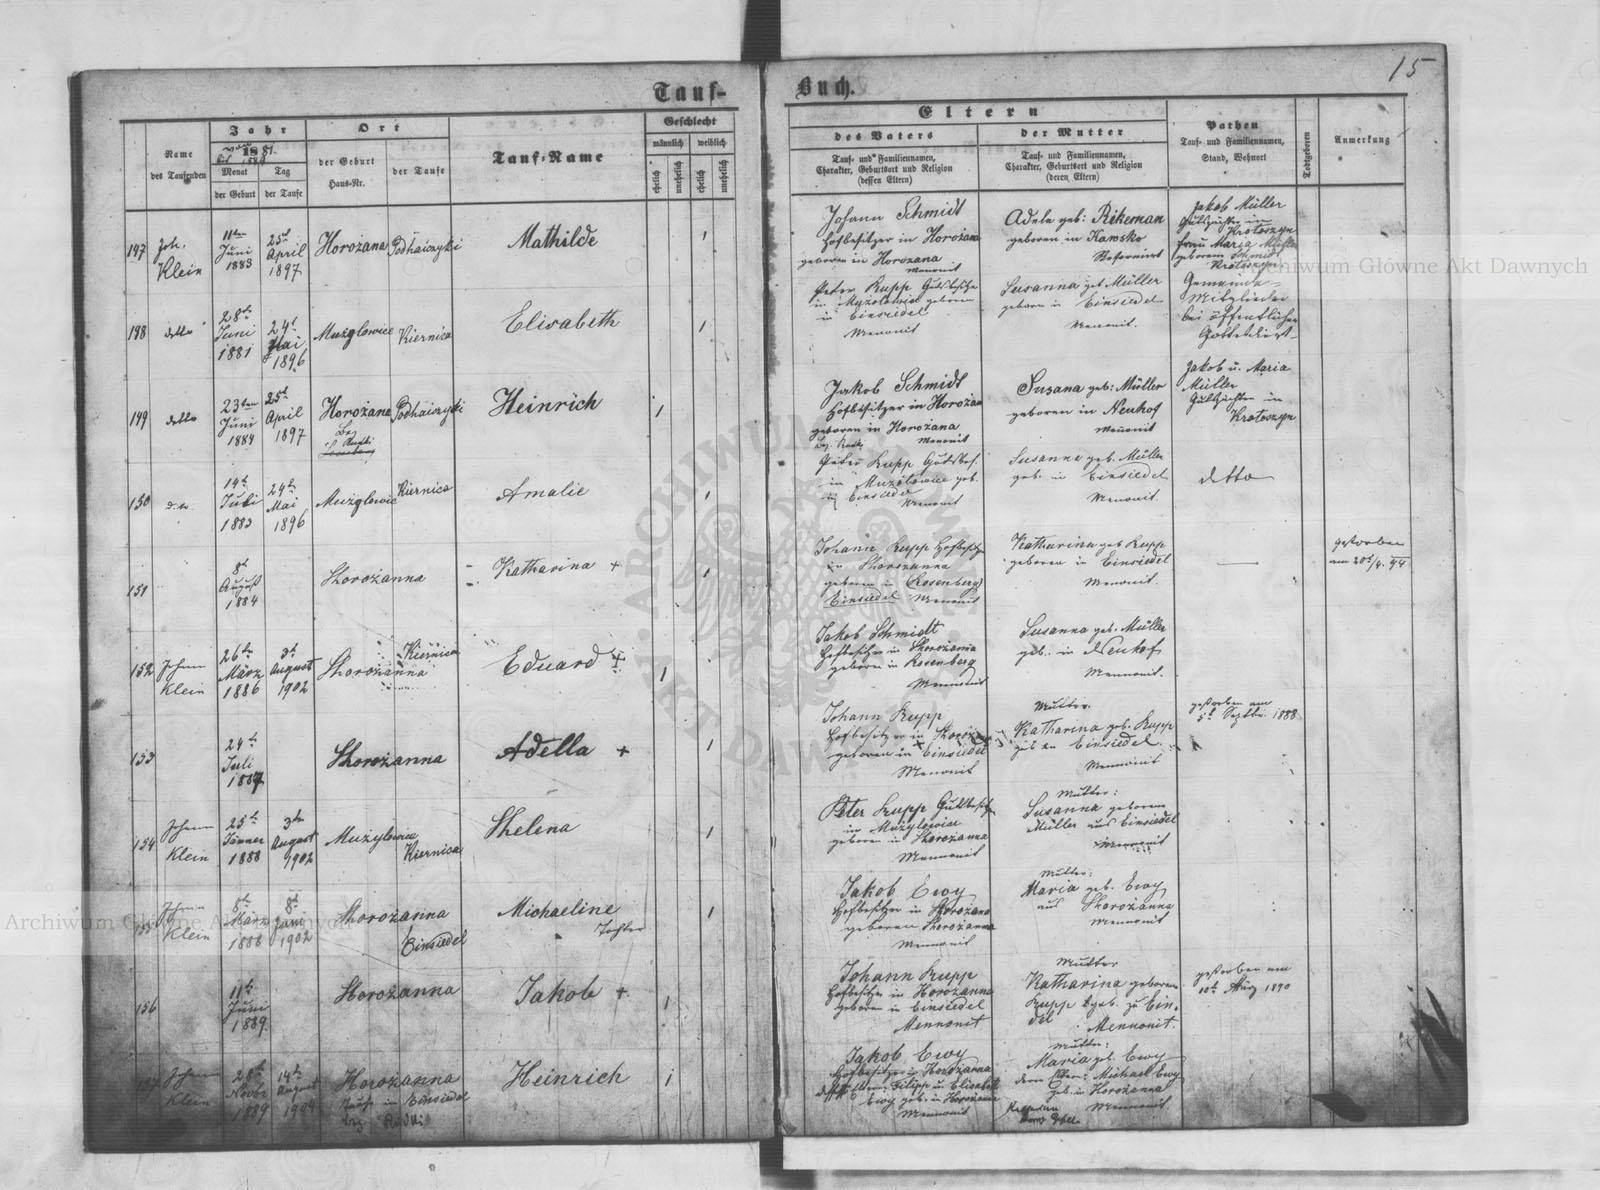 15
Tauf-Buch.
Name
des Taufenden
Jahr
von 1881
bis 1889
Monat
der Geburt
Tag
der Taufe
Ort
der Geburt
Haus-Nr.
der Taufe
Tauf-Name
Geschlecht
männlich
weiblich
ehelich
unehelich
ehelich
unehelich
Eltern
des Vaters
Tauf- und Familiennamen,
Charakter, Geburtsort und Religion
(dessen Eltern)
der Mutter
Tauf- und Familiennamen,
Charakter, Geburtsort und Religion
(deren Eltern)
Pathen
Tauf- und Familiennamen,
Stand, Wohnort
Todtgeboren
Anmerkung
147
Joh.
Klein
11ten
Juni
1883
25t
April
1897
Horożana
Podhaiczyki
Mathilde
Johann Schmidt
Hofbesitzer in Horożana
geboren in Horożana
Menonit
Adele geb: Rikeman
geboren in Kamsko
Reformiert
Jakob Müller
Gutspächter in
Krotoszyn
Frau Maria Müller
geborene Schmidt
Krotoszyn
148
detto
28t
Juni
1881
24t
Mai
1896
Mużylowice
Kiernica
Elisabeth
Peter Rupp Gutsbesitzer
in Mużylowice geboren
in Einsiedel
Menonit
Susanna geb. Müller
geboren in Einsiedel
Menonit.
Gemeinde-
Mitglieder
bei öffentlichem
Gottesdienst
149
detto
23ten
Juni
1884
25t
April
1897
Horożana
Bez
Rudki
Podhaiczyki
Heinrich
Jakob Schmidt
Hofbesitzer in Horożana
geboren in Horożana
Bez. Rudki
Menonit
Susana geb: Müller
geboren in Neuhof
Menonit
Jakob u. Maria
Müller
Gutspächter in
Krotoszyn
150
d.to.
14t
Juli
1883
24t
Mai
1896
Mużylowice
Kiernica
Amalie
Peter Rupp Gutsbes.
in Mużilowice geb.
in Einsiedel
Menonit
Susanna geb. Müller
geb. in Einsiedel
Menonit.
detto
151
8t
August
1884
Horożanna
Katharina +
Johann Rupp Hofbesitzer
in Horożanna
geboren in (Rosenberg)
Einsiedel Menonit
Katharina geb Rupp
geboren in Einsiedel
Menonit.
gestorben
am 20t/4. 44
152
Johann
Klein
26t
März
1886
3t
August
1902
Horożanna
Kiernica
Eduard +
Jakob Schmidt
Hofbesitzer in Horożanna
geboren in Rosenberg
Mennonit
Susanna geb. Müller
geb. in Neuhof
Mennonit.
153
24t
Juli
1887
Horożanna
Adella +
Johann Rupp
Hofbesitzer in Horoż.
geboren in Einsiedel
Menonit
Mutter.
Katharina geb. Rupp
geb. zu Einsiedel
Mennonit
gestorben am
5t Septbr. 1888
154
Johann
Klein
25t
Jänner
1888
3ten
August
1902
Mużylowice
Kiernica
Helena
Peter Rupp Gutsbesitzer
in Mużylowice
geboren in Horożanna
Mennonit
Mutter:
Susanna geborene
Müller aus Einsiedel
Mennonit
155
Johann
Klein
8t
März
1888
8t
Juni
1902
Horożanna
Einsiedel
Michaeline
Tochter
Jakob Ewy
Hofbesitzer in Horożana
geboren Horożanna
Mennonit
Mutter:
Maria geb. Ewy
aus Horożanna
Mennonit
156
11t
Juni
1889.
Horożanna
Jakob +
Johann Rupp
Hofbesitzer in Horożanna
geboren in Einsiedel
Mennonit
Mutter
Katharina geboren
Rupp geb. zu Einsie-
del
Mennonit.
gestorben am
10t Aug 1890
157
Johann
Klein
28t
Novbr
1889
14t
August
1904
Horożanna
Taufe in Einsiedel
bez Rudki
Heinrich
Jakob Ewy
Hofbesitzer in Horożanna
dessen Eltern: Filipp u Elisabeth
Ewy geb. in Horożana
Mennonit
Mutter:
Maria geb. Ewy
deren Eltern: Michael Ewy
geb. in Horożanna
Mennonit.
Archiwum Główne Akt Dawnych
Archiwum Główne Akt Dawnych